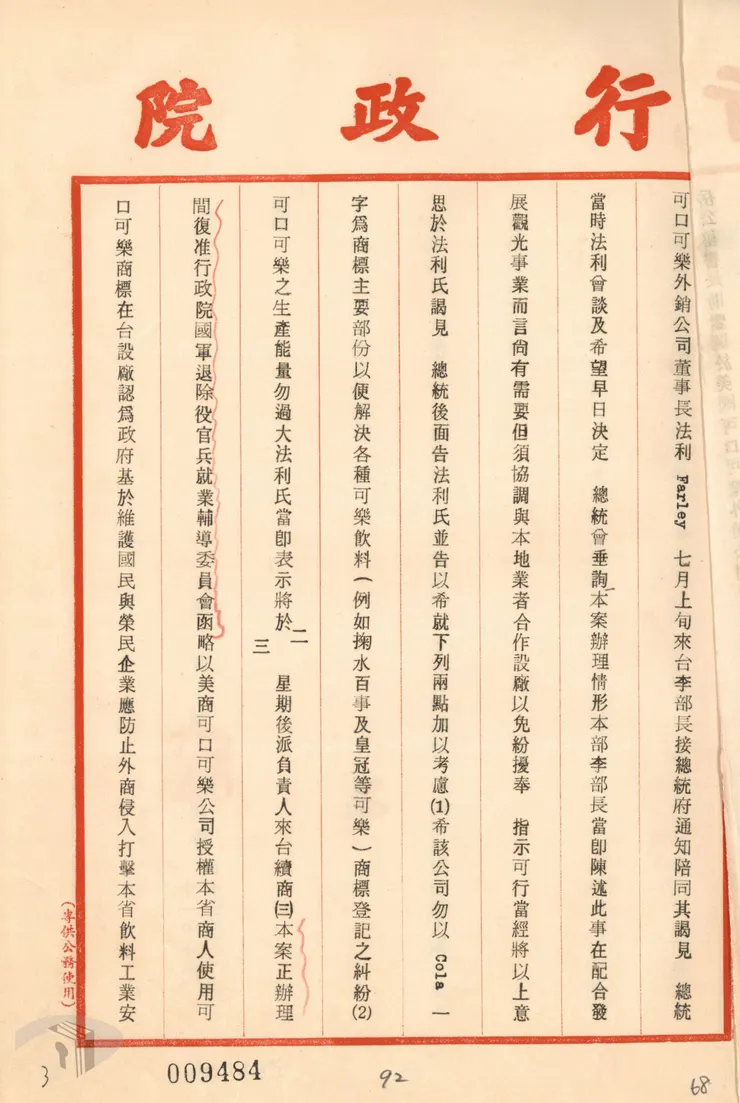 行政院
可口可樂外銷公司董事長法利 Farley 七月上旬來台李部長接總統府通知陪同其謁見 總統
當時法利曾談及希望早日決定 總統曾垂詢本案辦理情形本部李部長當即陳述此事在配合發
展觀光事業而言尚有需要但須協調與本地業者合作設廠以免紛擾奉 指示可行當經將以上意
思於法利氏謁見 總統後面告法利氏並告以希就下列兩點加以考慮(1)希該公司勿以 Cola 一
字爲商標主要部份以便解決各種可樂飲料(例如掬水百事及皇冠等可樂)商標登記之糾紛(2)
可口可樂之生產能量勿過大法利氏當即表示將於二三星期後派負責人來台續商㈢本案正辦理
間復准行政院國軍退除役官兵就業輔導委員會函略以美商可口可樂公司授權本省商人使用可
口可樂商標在台設廠認爲政府基於維護國民與榮民企業應防止外商侵入打擊本省飲料工業安
(專供公務使用)
3
009484
92
68